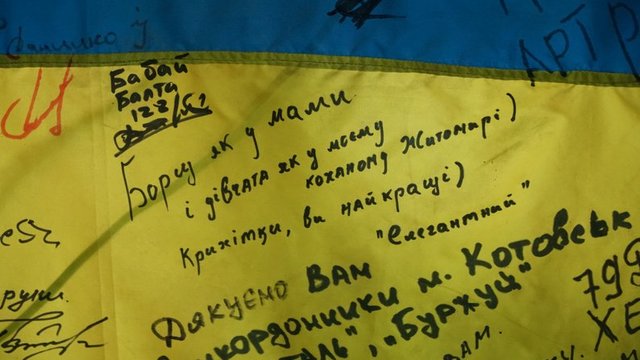 АРТ
Бабай
Балта
122/
Борщ як у мами
і дівчата як у моєму
коханому Житомирі)
Крихітки, ви найкращі)
"Елегантний"
Дякуємо ВАМ
икордонники м. Котовськ
таль", "Буржуй"
799
ХЕ